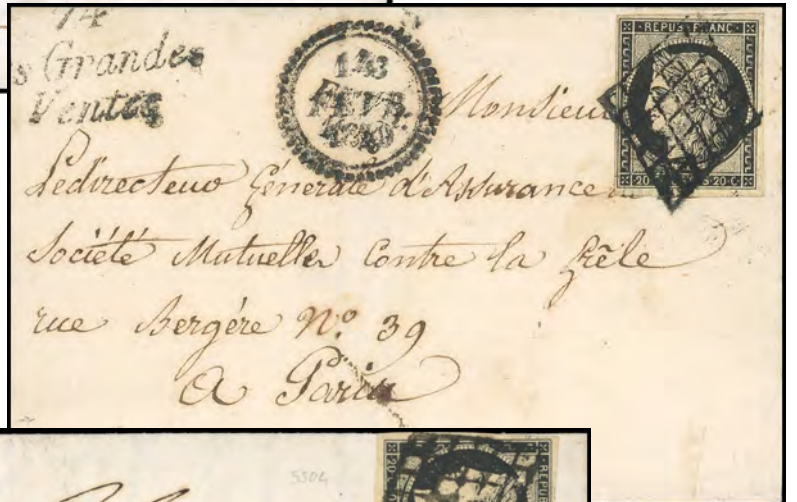 74
s Grandes
Ventes
FEVR.
REPUB. FRANC.
20 20 C
Monsieur
Ledirecteur Générale d'Assurance
Société Mutuelle Contre la Grêle
rue Bergére N.º 39
A Paris
5504